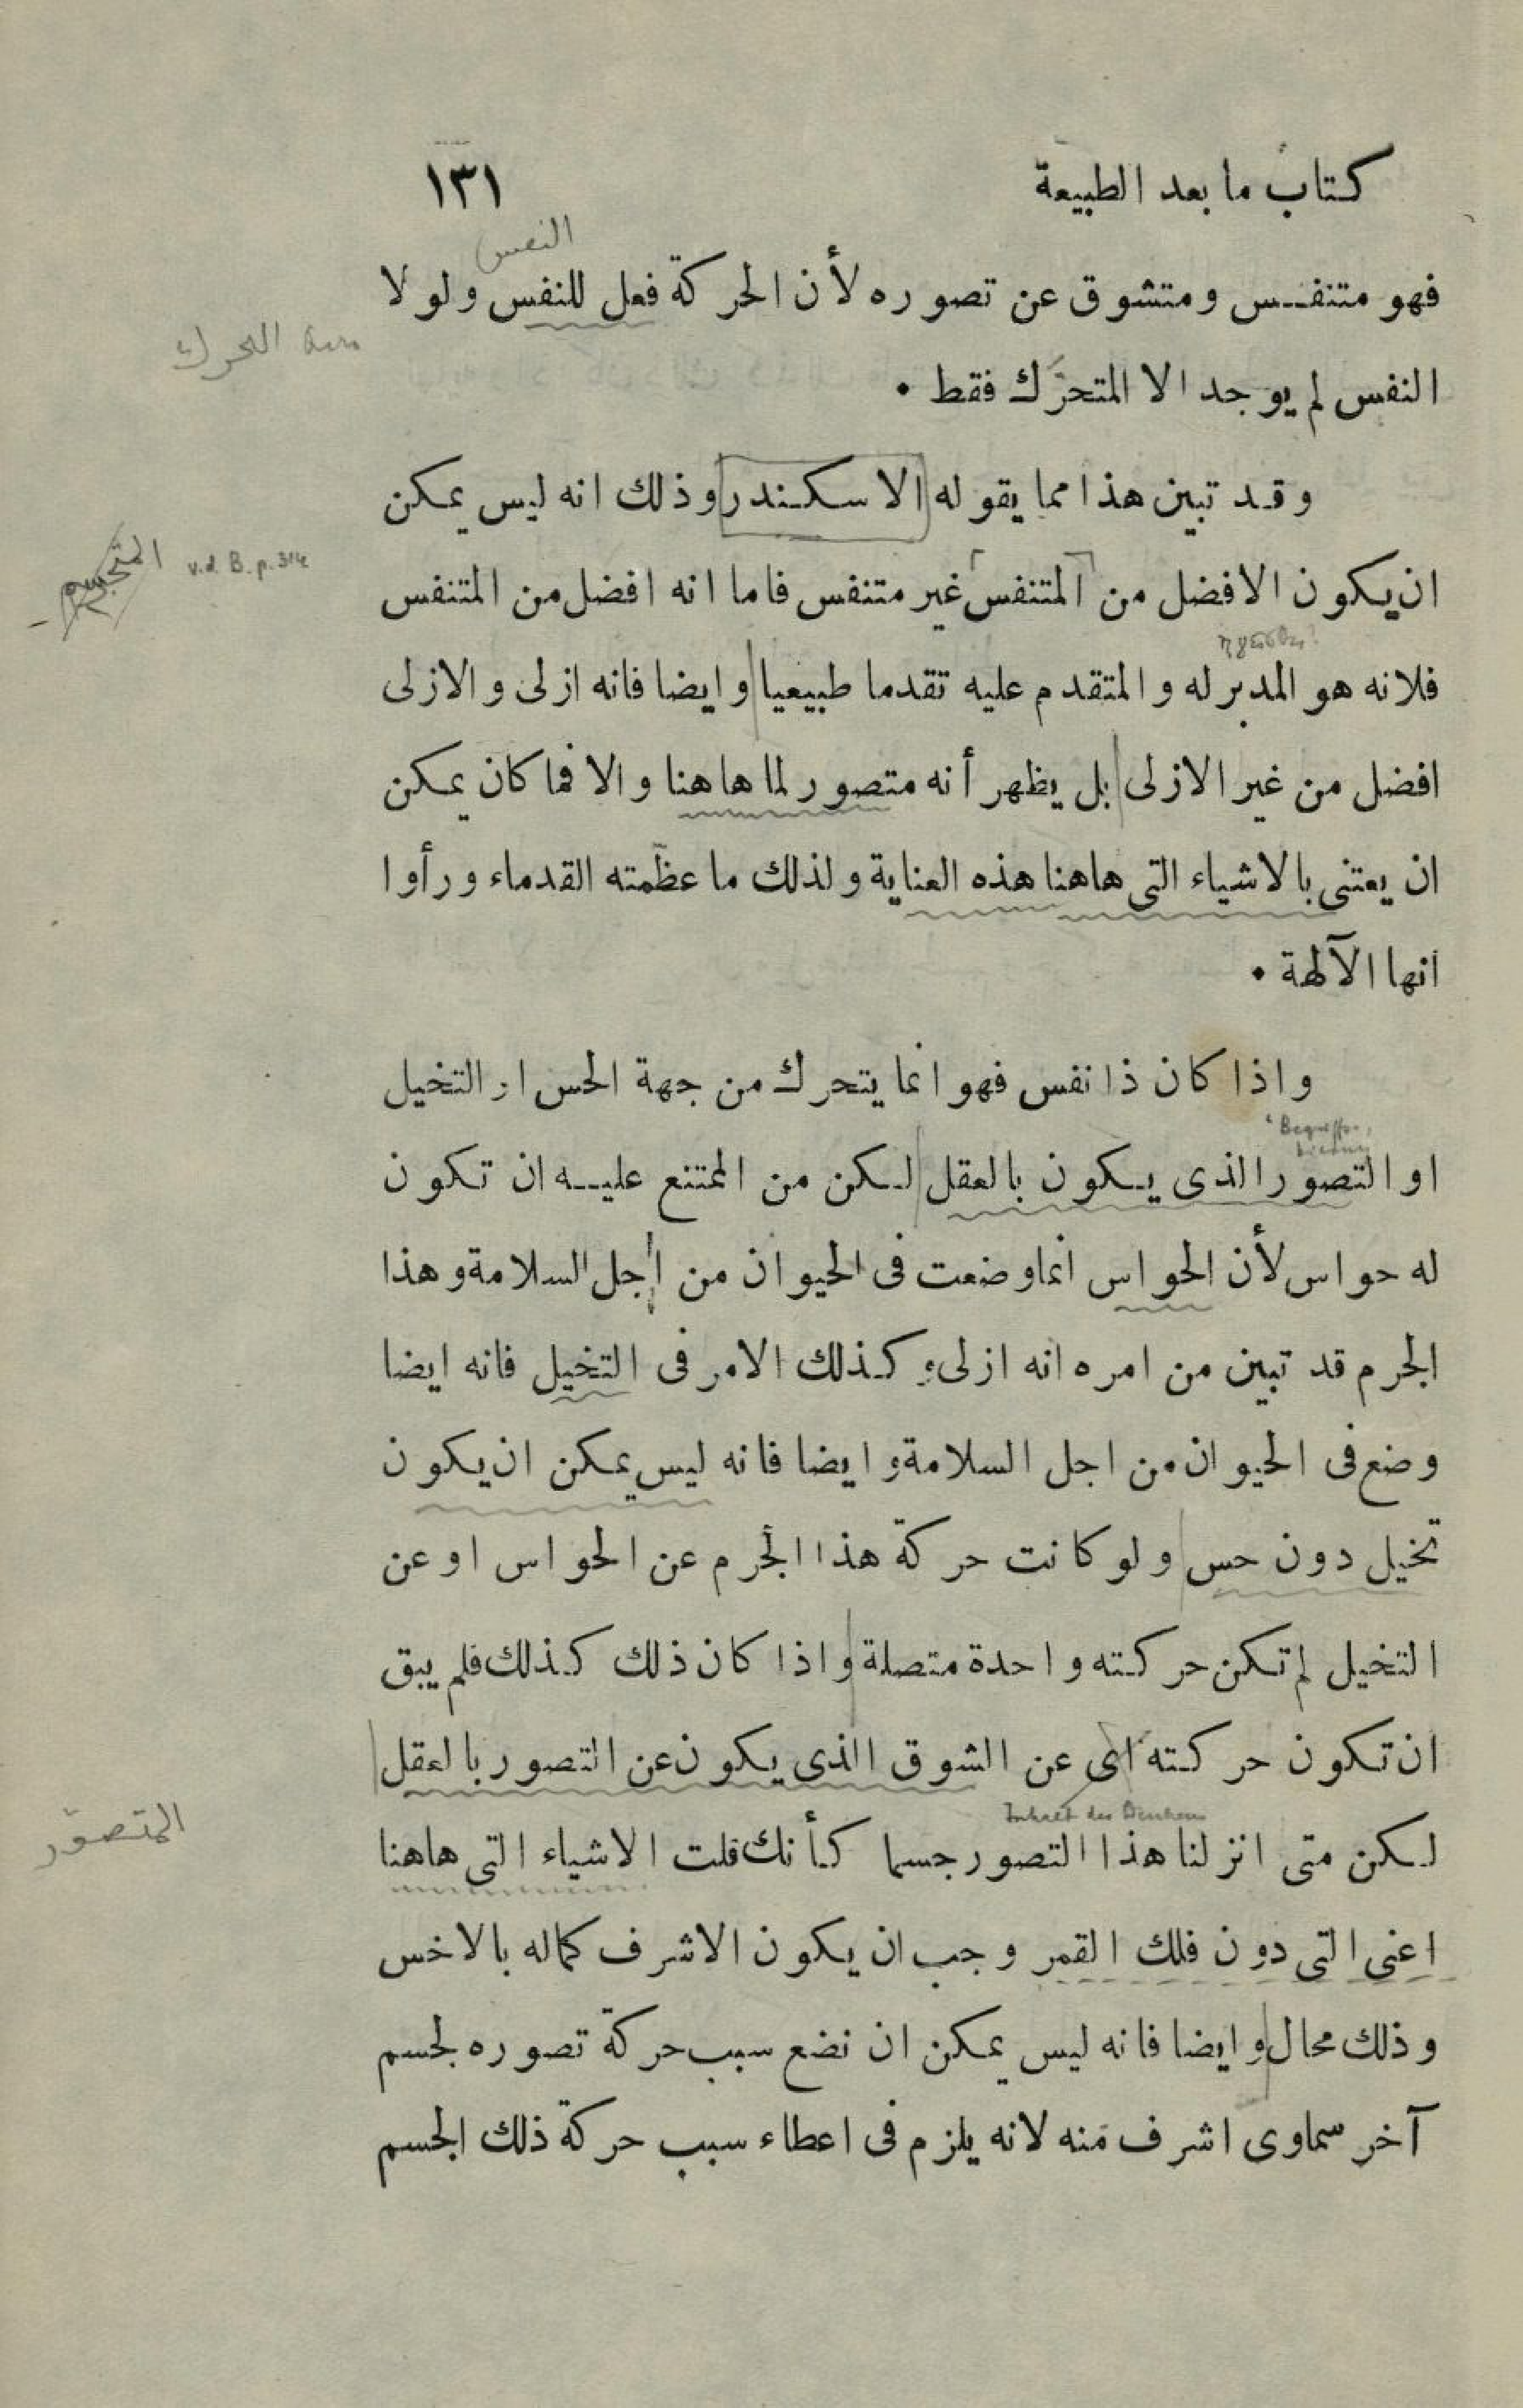 كتاب ما بعد الطبيعة ١٣١
النفس
فهو متنفس ومتشوق عن تصوره لأن الحركة فعل للنفس ولولا
التحرك
النفس لم يوجد الا المتحرّك فقط ٠
وقد تبين هذا مما يقوله الاسكندر وذلك انه ليس يمكن
المتجسم v.d. B. p. 314
ان يكون الافضل من المتنفس غير متنفس فاما انه افضل من المتنفس
فلانه هو المدبر له والمتقدم عليه تقدما طبيعيا وايضا فانه ازلى والازلى
افضل من غير الازلى بل يظهر أنه متصور لما هاهنا والا فما كان يمكن
ان يعتنى بالاشياء التى هاهنا هذه العناية ولذلك ما عظّمته القدماء ورأوا
انها الآلهة ٠
واذا كان ذا نفس فهو انما يتحرك من جهة الحس او التخيل
او التصور الذى يكون بالعقل لكن من الممتنع عليه ان تكون
له حواس لأن الحواس انما وضعت فى الحيوان من أجل السلامة وهذا
الجرم قد تبين من امره انه ازلى و كذلك الامر فى التخيل فانه ايضا
وضع فى الحيوان من اجل السلامة و ايضا فانه ليس يمكن ان يكون
تخيل دون حس ولو كانت حركة هذا الجرم عن الحواس او عن
التخيل لم تكن حركته واحدة متصلة واذا كان ذلك كذلك فلم يبق
ان تكون حركته اى عن الشوق الذى يكون عن التصور بالعقل
Inhalt des Denkens
المتصوّر
لكن متى انزلنا هذا التصور جسما كأنك قلت الاشياء التى هاهنا
اعنى التى دون فلك القمر وجب ان يكون الاشرف كماله بالاخس
وذلك محال وايضا فانه ليس يمكن ان نضع سبب حركة تصوره لجسم
آخر سماوى اشرف منه لانه يلزم فى اعطاء سبب حركة ذلك الجسم